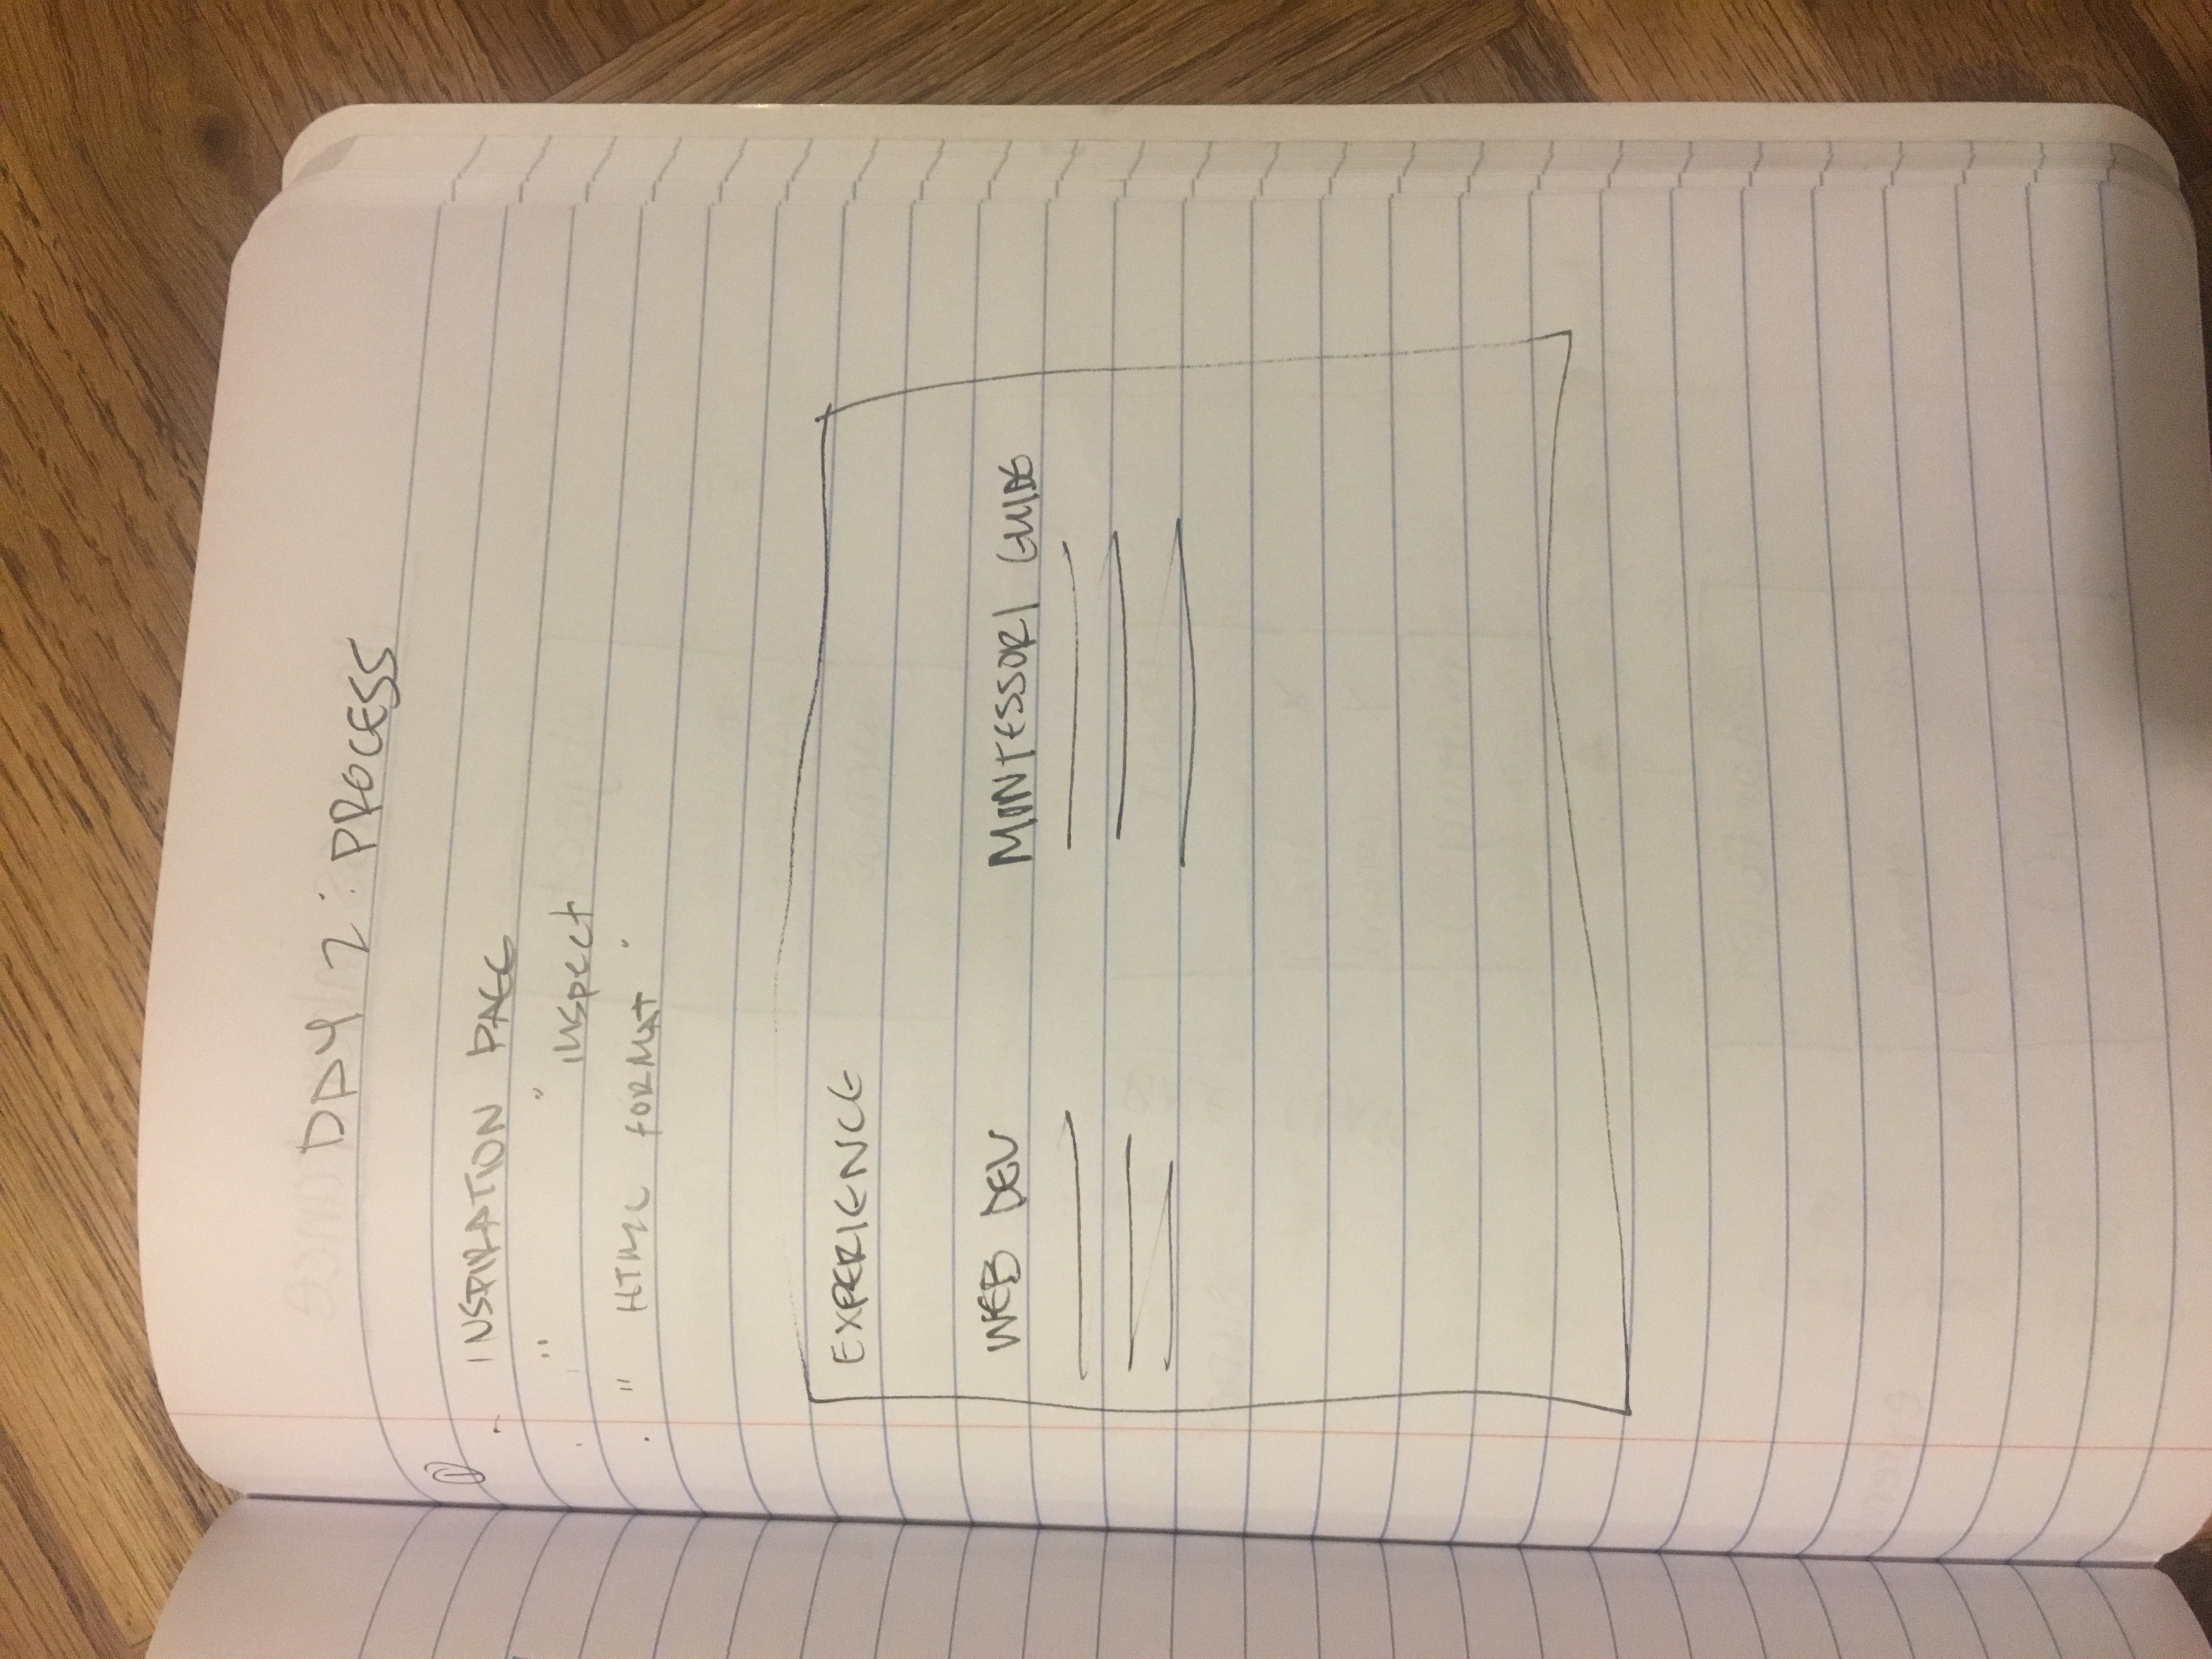 DAY 2 : PROCESS
①
- INSPIRATION PAGE
. " " inspect
. " HTML FORMAT "
EXPERIENCE
WEB DEV MONTESSORI GUIDE